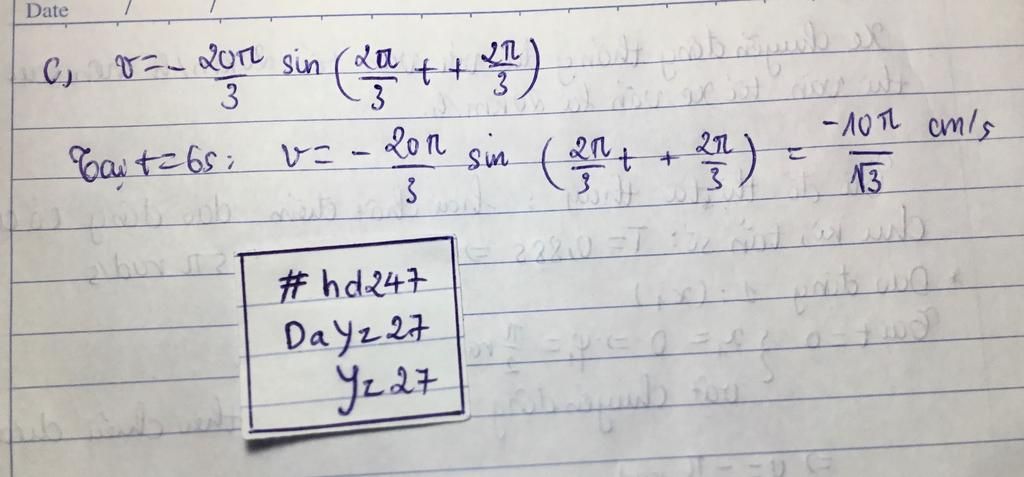 Date / /
c, v = - 20π/3 sin (2π/3 t + 2π/3)
Tại t = 6s: v = - 20π/3 sin (2π/3 t + 2π/3) = -10π/√3 cm/s
#hd247
DaYz27
Yz27